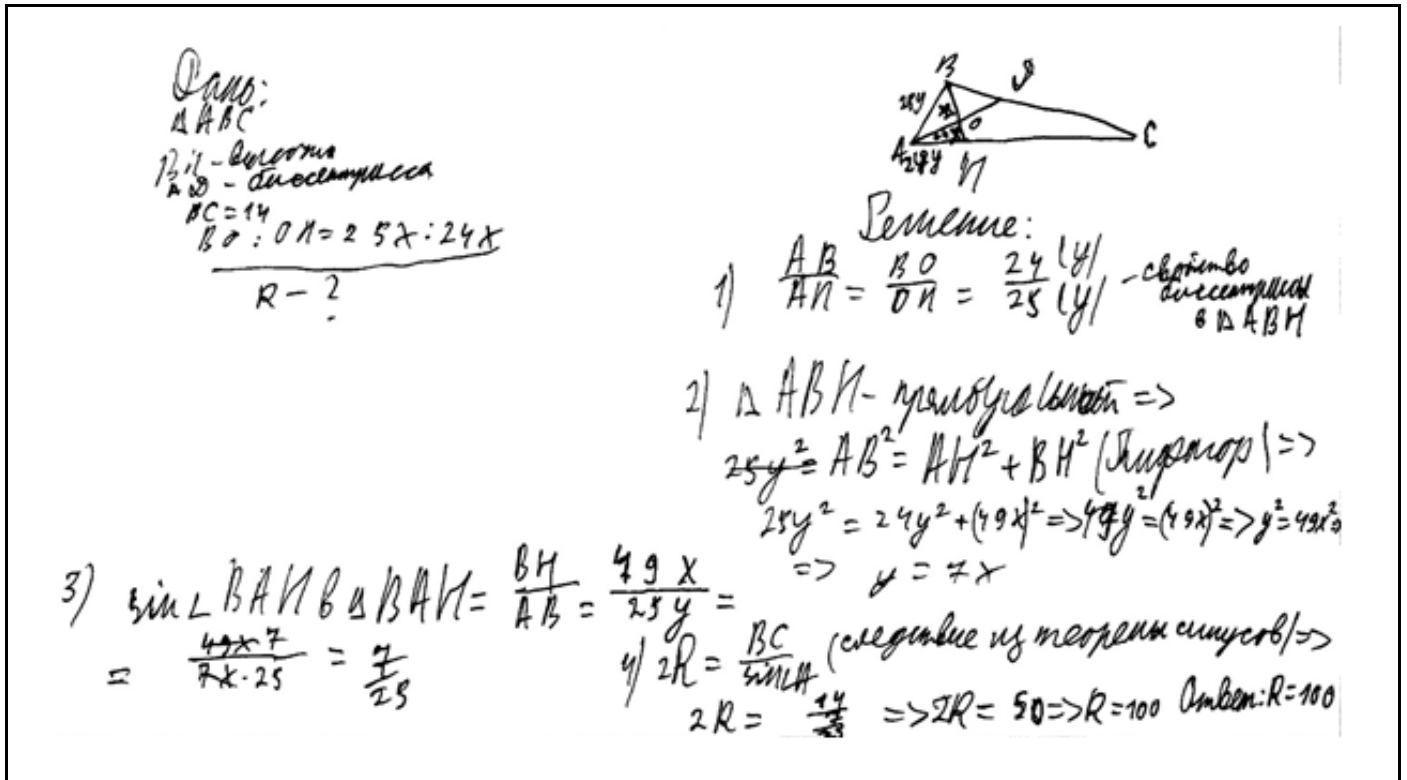 Дано:
△ ABC
BH - высота
AD - биссектрисса
BC = 14
BO : OH = 25x : 24x
R - ?
B
D
25y
x
O
A
24y
H
C
Решение:
1) AB/AH = BO/OH = 24 (y)/25 (y) - свойство
биссектрисы
в △ ABH
2) △ ABH - прямоугольный =>
25y² = AB² = AH² + BH² (Пифагор) =>
25y² = 24y² + (49x)² => 49y² = (49x)² => y² = 49x² =>
=> y = 7x
3) sin∠BAH в △BAH = BH/AB = 49x/25y =
= 49x·7/7x·25 = 7/25
4) 2R = BC/sin∠A (следствие из теоремы синусов) =>
2R = 14/(7/25) => 2R = 50 => R = 100 Ответ: R = 100